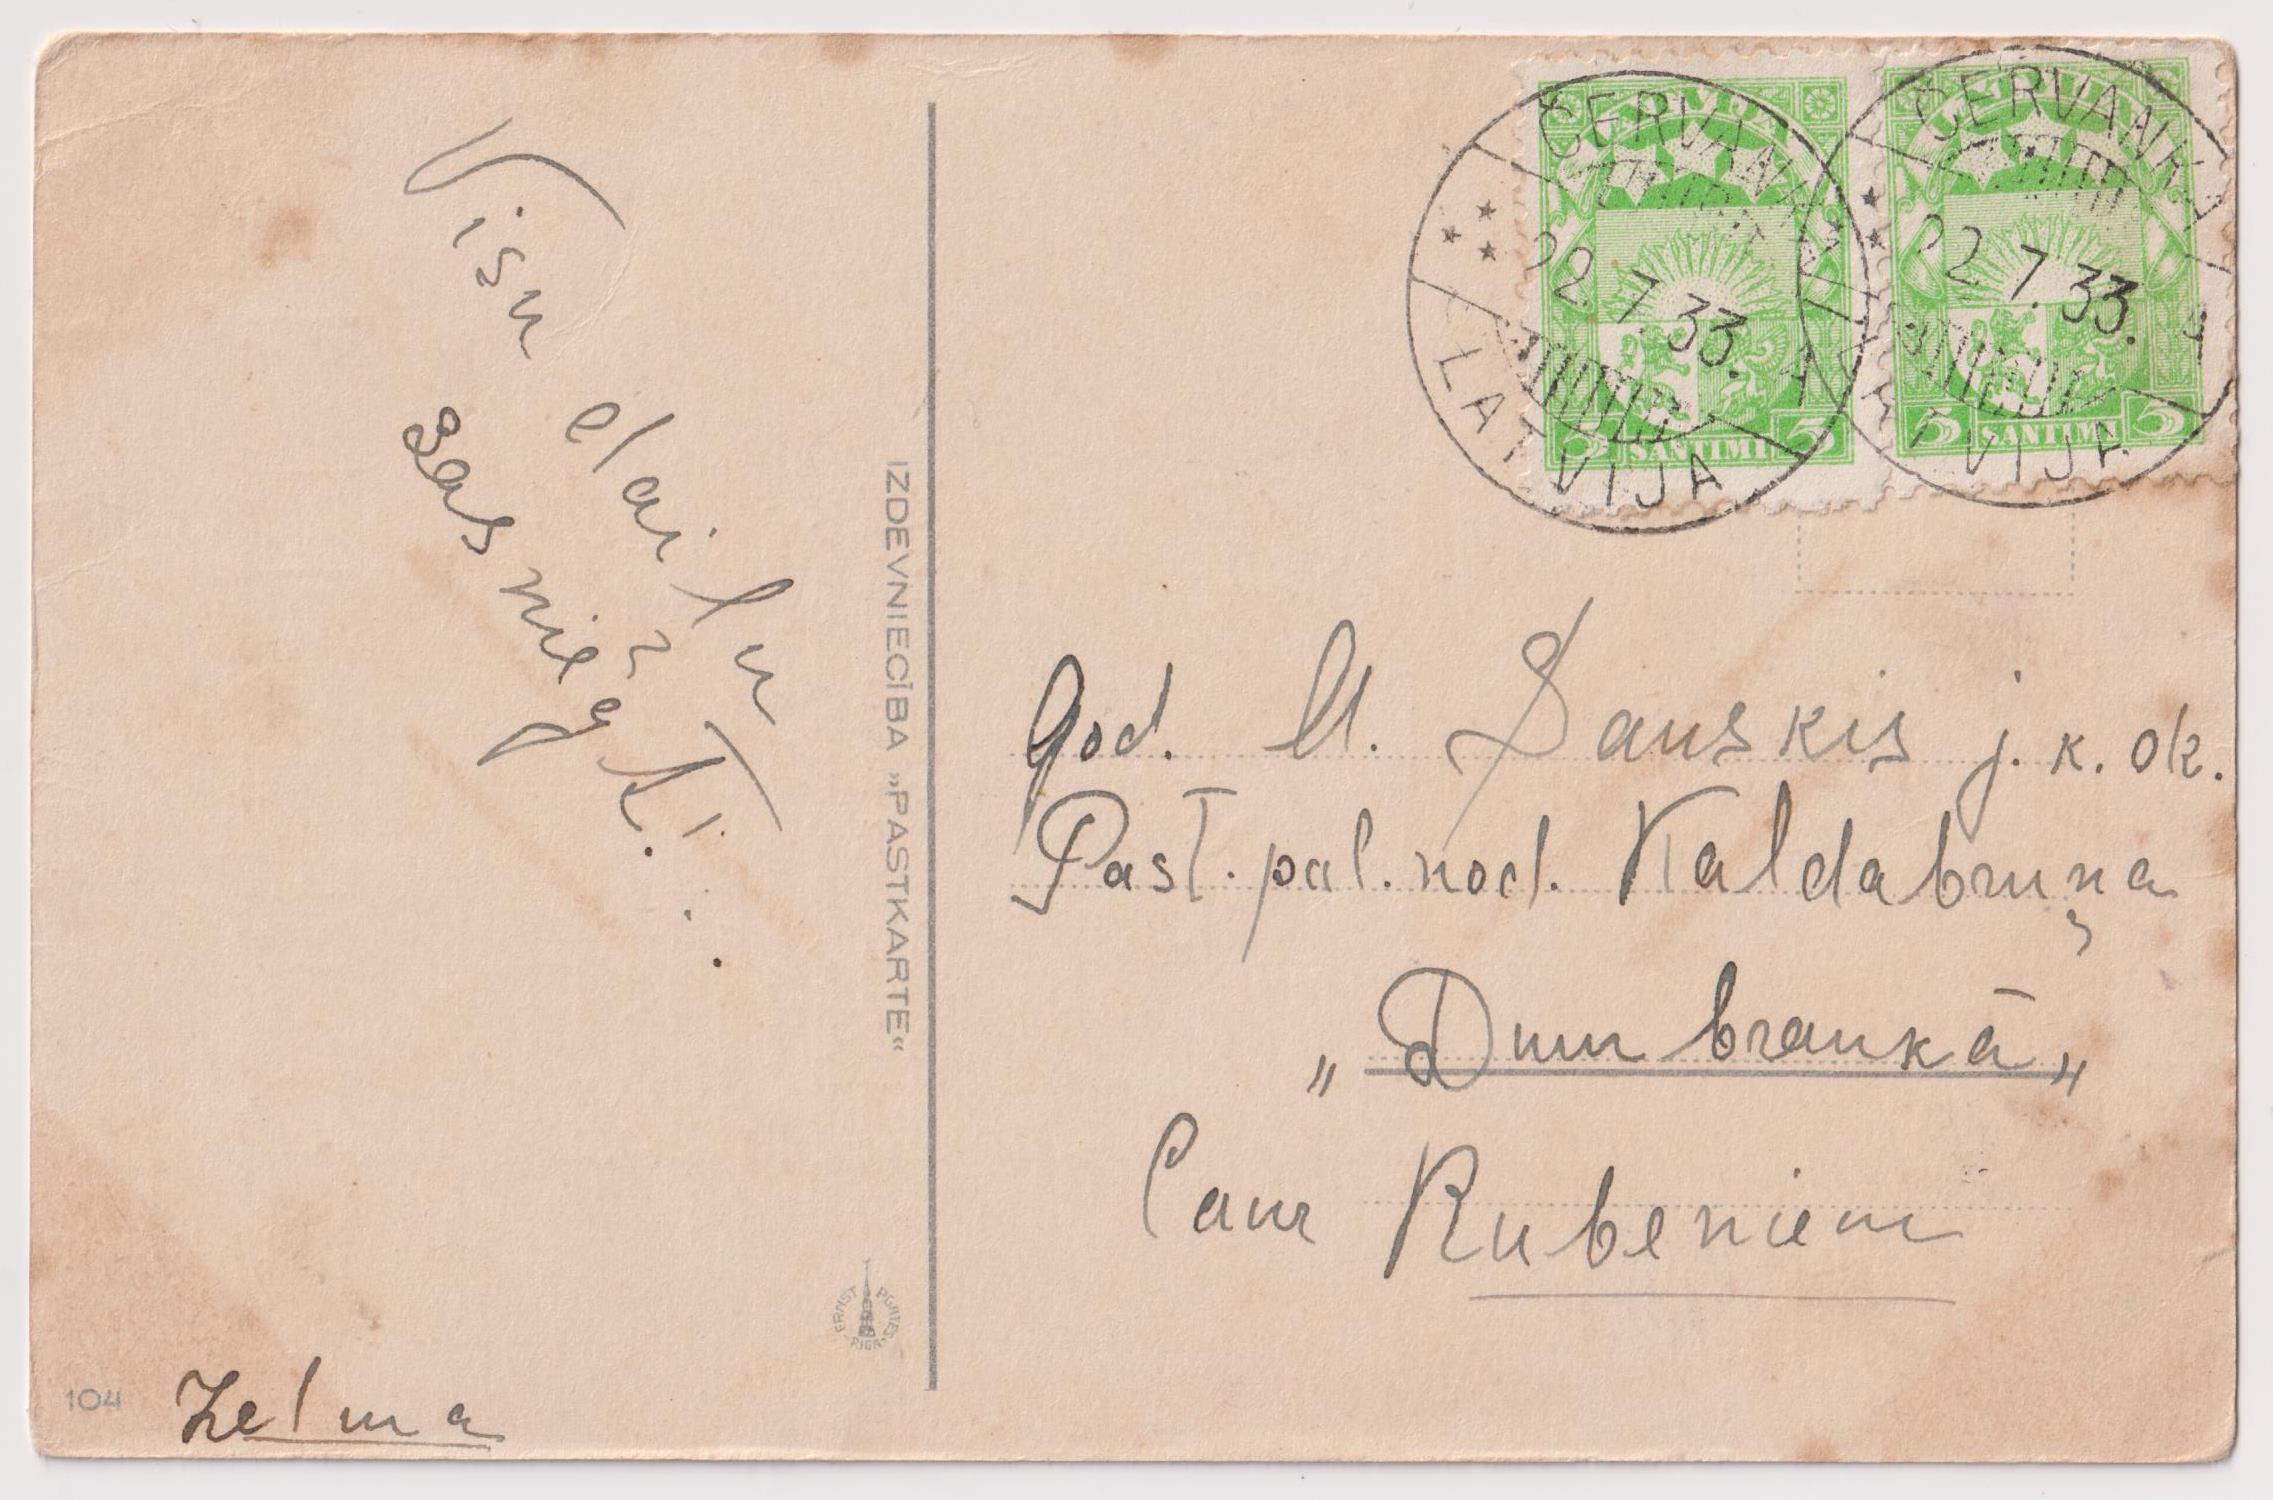 Visu daiļu
sasniegt! . . .
Zelma
104
IZDEVNIECĪBA »PASTKARTE«
ERNST PLATES RIGA
LATVIJA
5 SANTIMI 5
LATVIJA
5 SANTIMI 5
CERVANKA
22.7.33. A
LATVIJA
CERVANKA
22.7.33. A
LATVIJA
God. M. Sauskis j.k. ok.
Past. pal. nod. Kaldabruņa
„Dumbraukā„
Caur Rubeniem